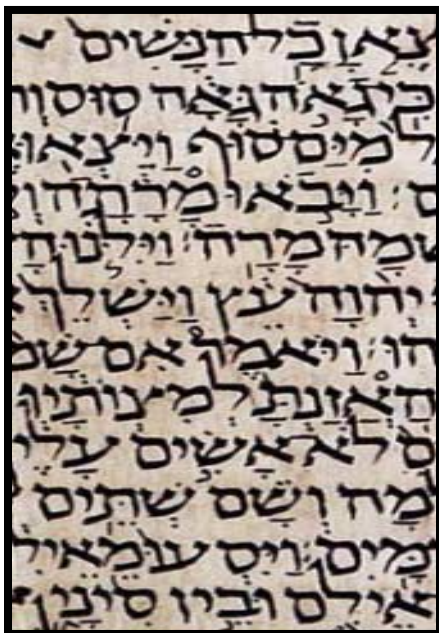 צֶאןָ כָל הַנָּשִׁים
כִּי גָאֹה גָּאָה סוּס וְר
ל מִיַּם סוּף וַיֵּצְאוּ
ם׃ וַיָּבֹאוּ מָרָתָה וְ
שְׁמָהּ מָרָה׃ וַיִּלֹּנוּ הָ
יְהוָה עֵץ וַיַּשְׁלֵךְ א
הוּ׃ וַיֹּאמֶר אִם שָׁמ
הַאֲזַנְתָּ לְמִצְוֺתָיו
ם לֹא אָשִׂים עָלֶי
מָה וְשָׁם שְׁתֵּים
מָּיִם׃ וַיִּסְעוּ מֵאֵיל
אֵילִם וּבֵין סִינָי